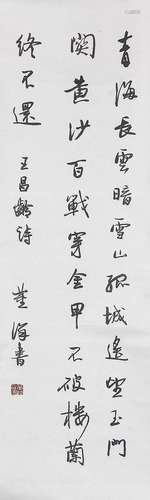 青海長雲暗雪山孤城遙望玉門
関黄沙百戰穿金甲不破樓蘭
終不還 王昌齡詩 董海書